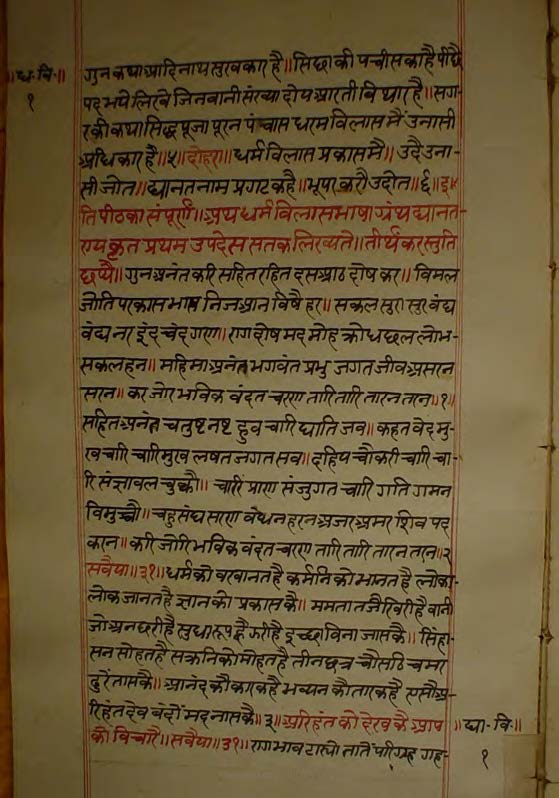 ॥ध॰वि॰॥
१
गुनकथाआदिनाथसुरवकारहै॥सिद्धाकीपचीसकाहैपीछै
पदभयेलिखेजिनवानीसंख्यादोयआरतीविचारहै॥सग
रकीकथासिद्धपूजापूरनपंचासधरमविलासमैंउनासी
अधिकारहै॥५॥दोहरा॥धर्मविलासप्रकासमै॥उदैउना-
सीजोत॥द्यानतनामप्रगटकहै॥भूपरकरौउदोत॥६॥इ
तिपीठकासंपूर्णं॥अथधर्मविलासभाषाग्रंथद्यानत-
रायकृतप्रथमउपदेससतकलिख्यते॥तीर्थंकरस्तुति
छप्पै॥गुनअनंतकरिसहितरहितदसआठदोषकर॥विमल
जोतिपरकासभासनिजआनविषैहर॥सकलसुरासुरवंद्य
वंद्यनरइंदचंदगरण॥रागदोषमदमोहक्रोधछललोभ-
सकलहन॥महिमाअनंतभगवंतप्रभुजगतजीवअसरन
सरन॥करजोरभविकवंदतचरणतारितारितारनतरन॥१॥
सहितअनंतचतुष्टनष्टहुवचारिघातिजव॥कहतवेदमु
खचारिचारिमुखलषतजगतसव॥दहियचौकरीचारिचा-
रिसंज्ञावलचुक्कौ॥चारिप्राणसंजुगतचारिगतिगमन
विमुक्कौ॥चहुसंघसारणवंधनहरनअजरअमरशिवपद
करन॥करिजोरिभविकवंदतचरणतारितारितारनतरन॥२
सवैया॥३१॥धर्मकोवरवानतहैकर्मनिकोभानतहैलोका-
लोकजानतहैज्ञानकोप्रकासकै॥ममतातजैरिवरीहैवानी
जोअनछरीहैसुधारूपह्वैझरीहैइच्छाविनाजासकै॥सिंहा-
सनसोहतहैसक्रनिकोमोहतहैतीनछत्रचौसठिचमर
ढुरेंतासकै॥आनंदकौकारकहैभव्यनकौतारकहैएसौअ-
रिहंतदेववंदौंमदनासकै॥३॥अरिहंतकोदेरवकैआप
कोविचारै॥सवैया॥३१॥रागभावटास्योतातेंपरिग्रहगह-
॥द्या॰वि॰॥
१